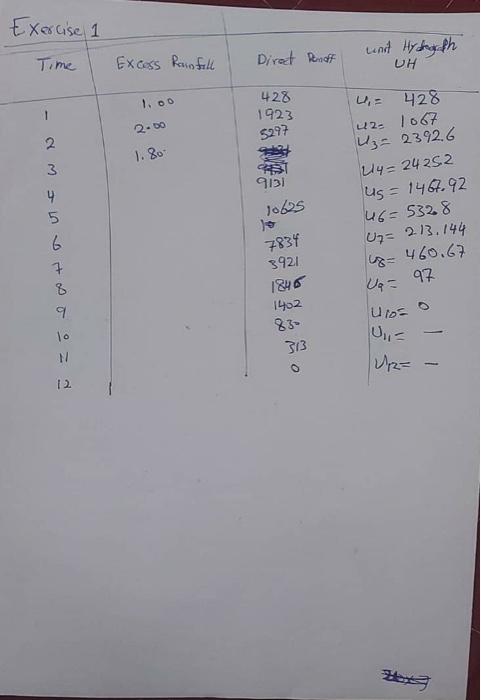 Exercise 1
Time Excess Rainfall Direct Runoff Unit Hydrograph UH
1 1.00 428 U1= 428
2 2.00 1923 U2= 1067
3 1.80 5297 U3= 2392.6
4 9131 U4= 24252
5 10625 U5= 1467.92
6 7834 U6= 532.8
7 3921 U7= 213.144
8 1846 U8= 460.67
9 1402 U9= 97
10 830 U10= 0
11 313 U11= —
12 0 U12= —